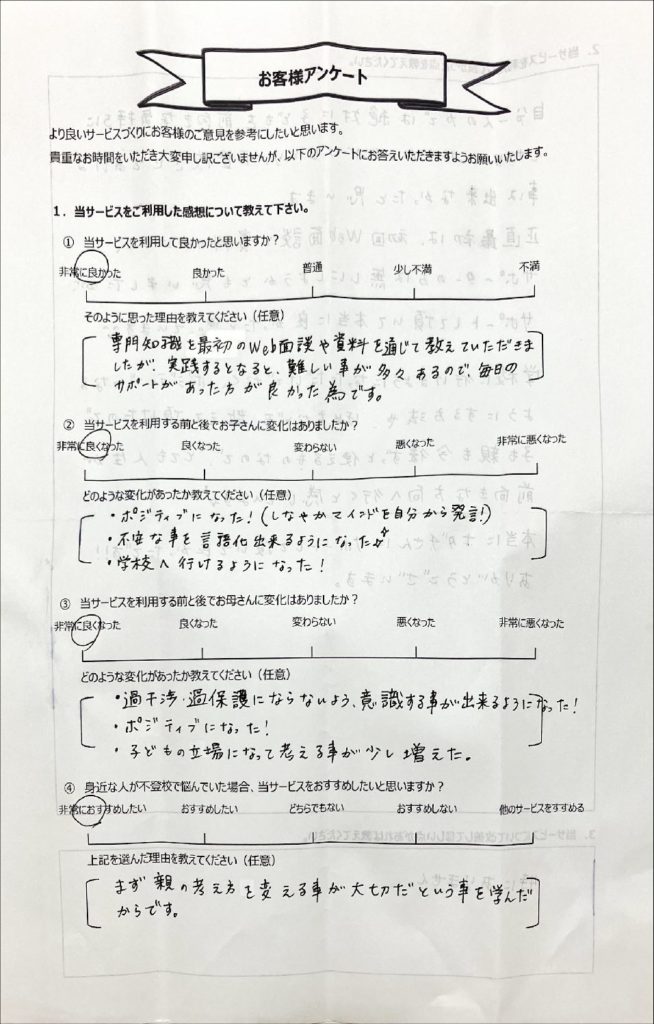 お客様アンケート
より良いサービスづくりにお客様のご意見を参考にしたいと思います。
貴重なお時間をいただき大変申し訳ございませんが、以下のアンケートにお答えいただきますようお願いいたします。
1．当サービスをご利用した感想について教えて下さい。
① 当サービスを利用して良かったと思いますか？
非常に良かった 良かった 普通 少し不満 不満
そのように思った理由を教えてください（任意）
専門知識を最初のWeb面談や資料を通じて教えていただきま
したが、実践するとなると、難しい事が多々あるので、毎日の
サポートがあった方が良かった為です。
② 当サービスを利用する前と後でお子さんに変化はありましたか？
非常に良くなった 良くなった 変わらない 悪くなった 非常に悪くなった
どのような変化があったか教えてください（任意）
・ポジティブになった！（しなやかマインドを自分から発言！）
・不安な事を言語化出来るようになった
・学校へ行けるようになった！
③ 当サービスを利用する前と後でお母さんに変化はありましたか？
非常に良くなった 良くなった 変わらない 悪くなった 非常に悪くなった
どのような変化があったか教えてください（任意）
・過干渉・過保護にならないよう、意識する事が出来るようになった！
・ポジティブになった！
・子どもの立場になって考える事が少し増えた。
④ 身近な人が不登校で悩んでいた場合、当サービスをおすすめしたいと思いますか？
非常におすすめしたい おすすめしたい どちらでもない おすすめしない 他のサービスをすすめる
上記を選んだ理由を教えてください（任意）
まず親の考え方を変える事が大切だという事を学んだ
からです。